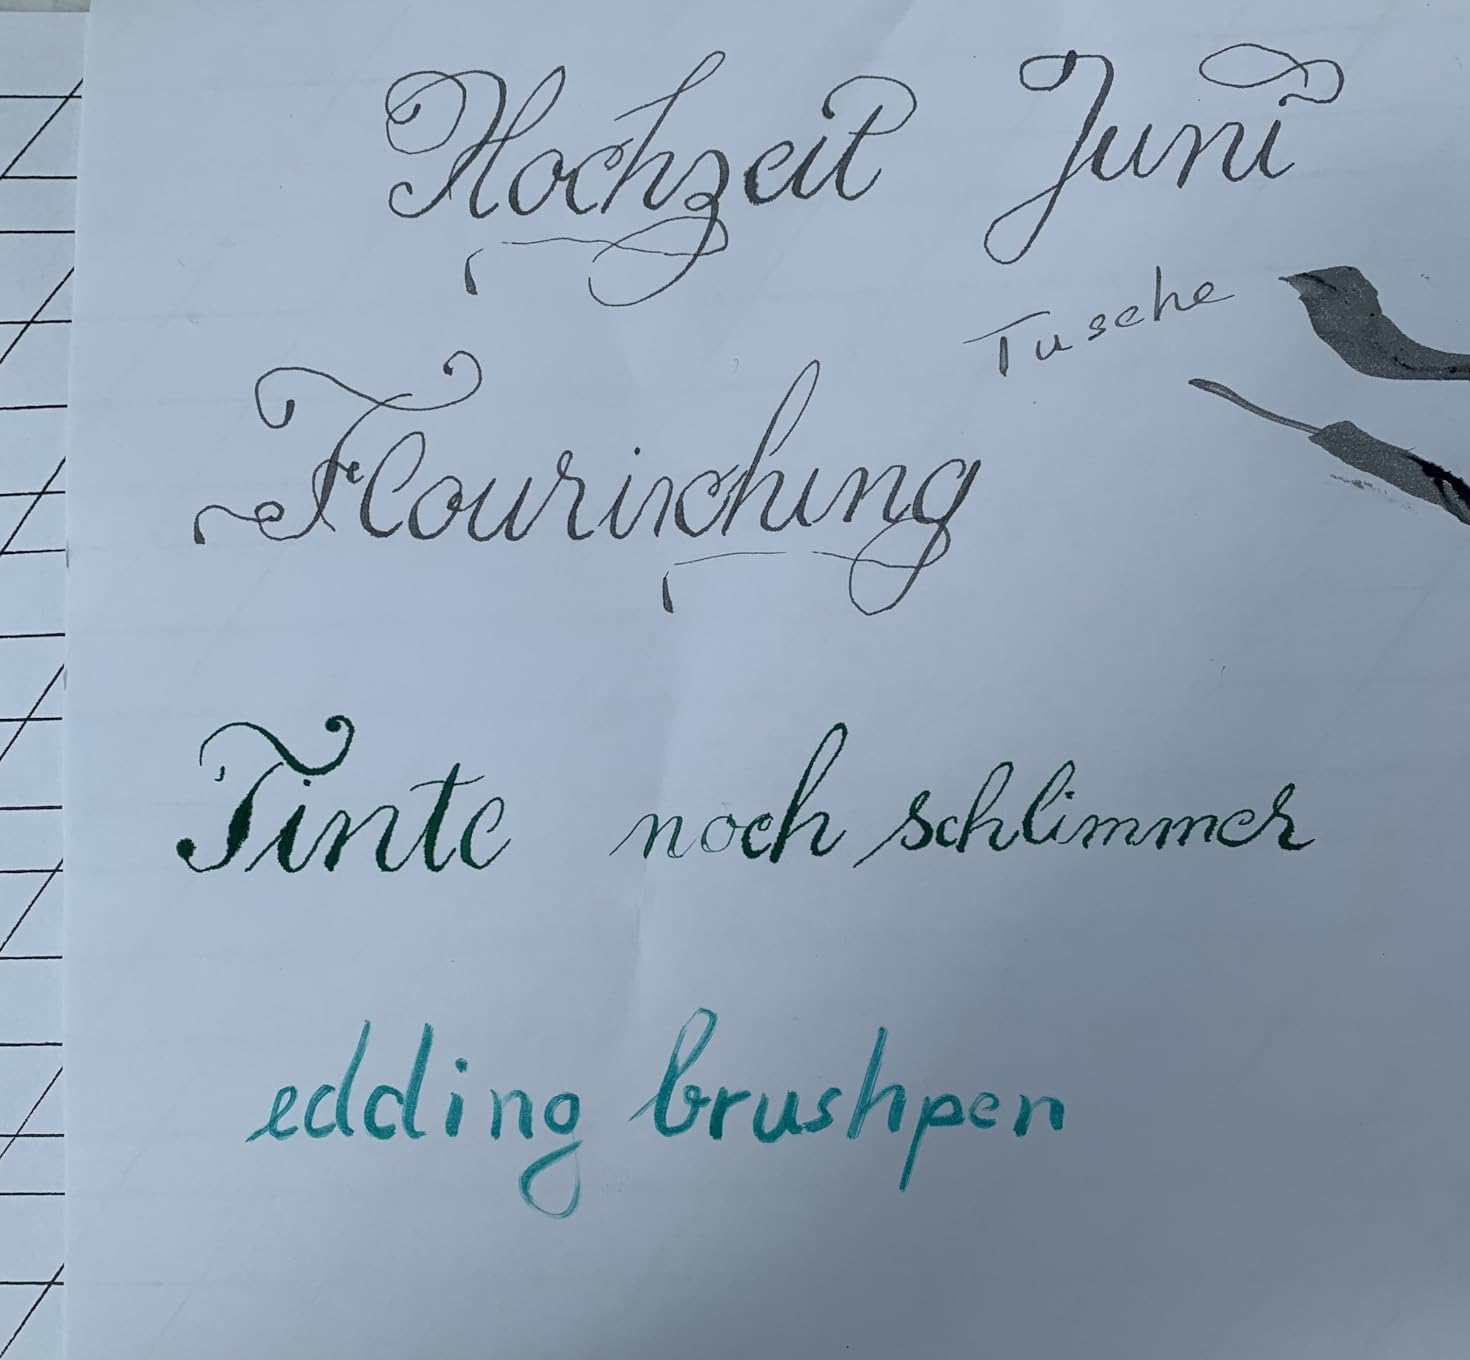 Hochzeit Juni
Tusche
Flourisching
Tinte noch schlimmer
edding brushpen